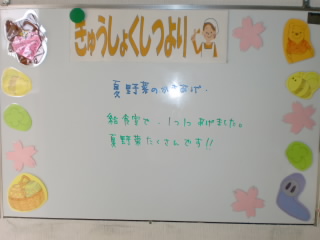 きゅうしょくしつより
夏野菜のかきあげ.
給食室で、1つ1つあげました。
夏野菜たくさんです!!